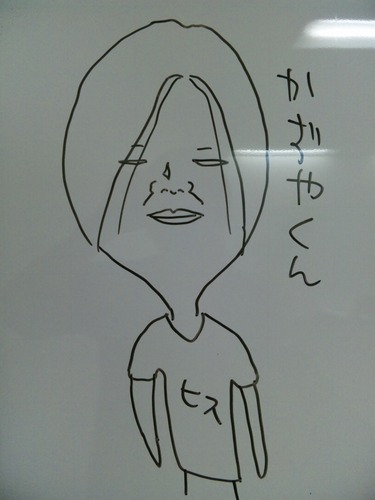 かざやくん
ヒス